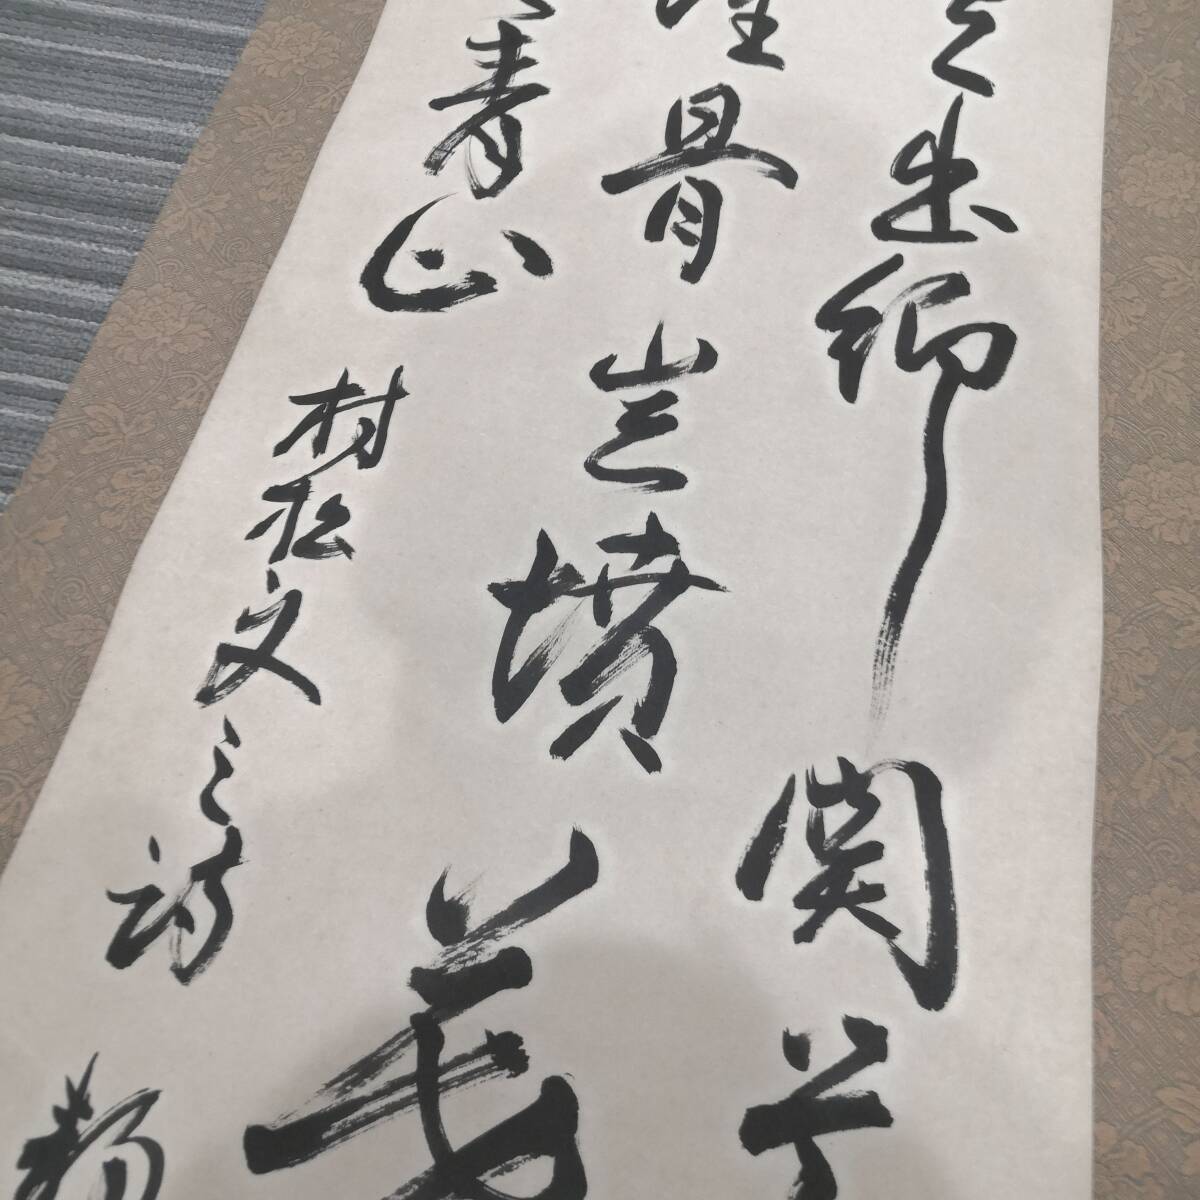 出郷関
埋骨豈墳墓
青山 村松文三詩